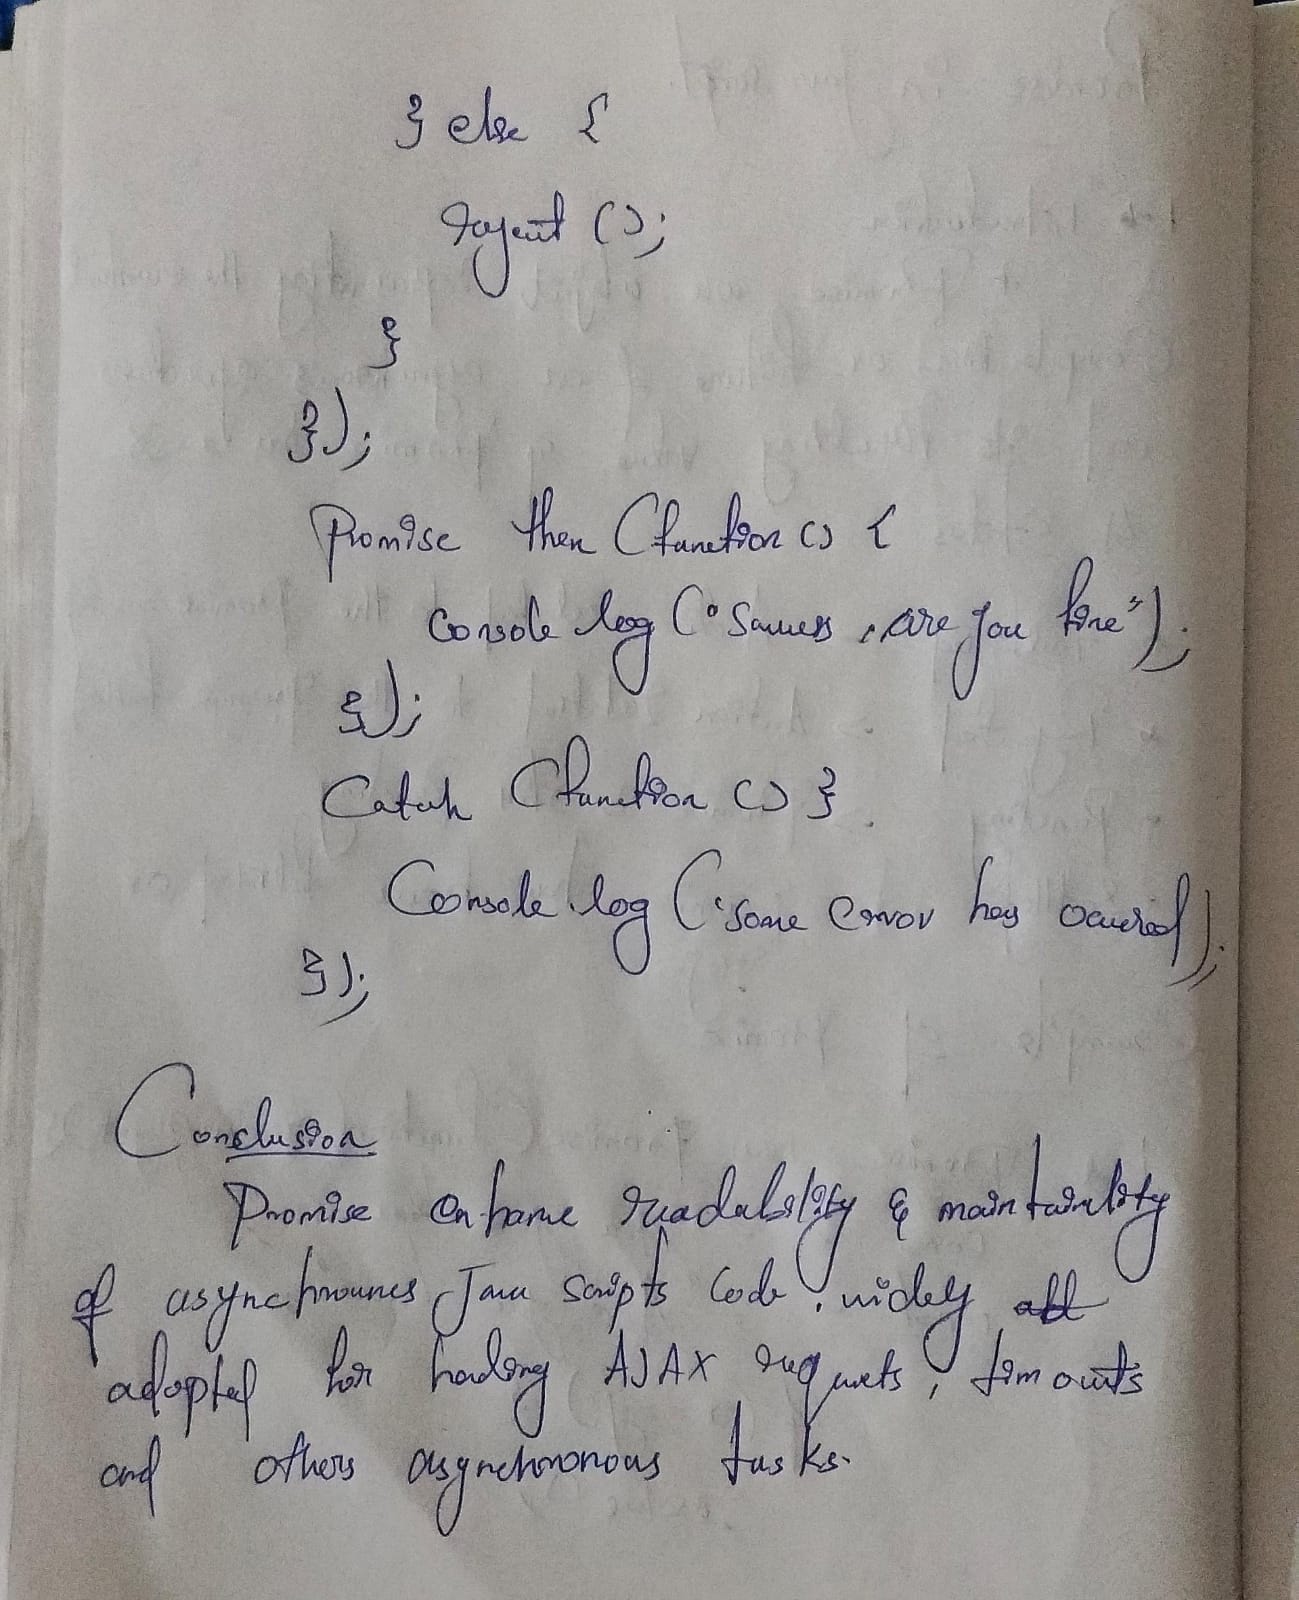 } else {
reject ();
}
});
Promise then (function () {
console log ("Success, are you fine");
});
Catch (function () }
Console.log ("some error has occured);
});
Conclusion
Promise enhance readability & maintainlity
of asynchrounes Java scripts code, widely
adopted for handing AJAX requests, timouts
and others asynchronous tasks.